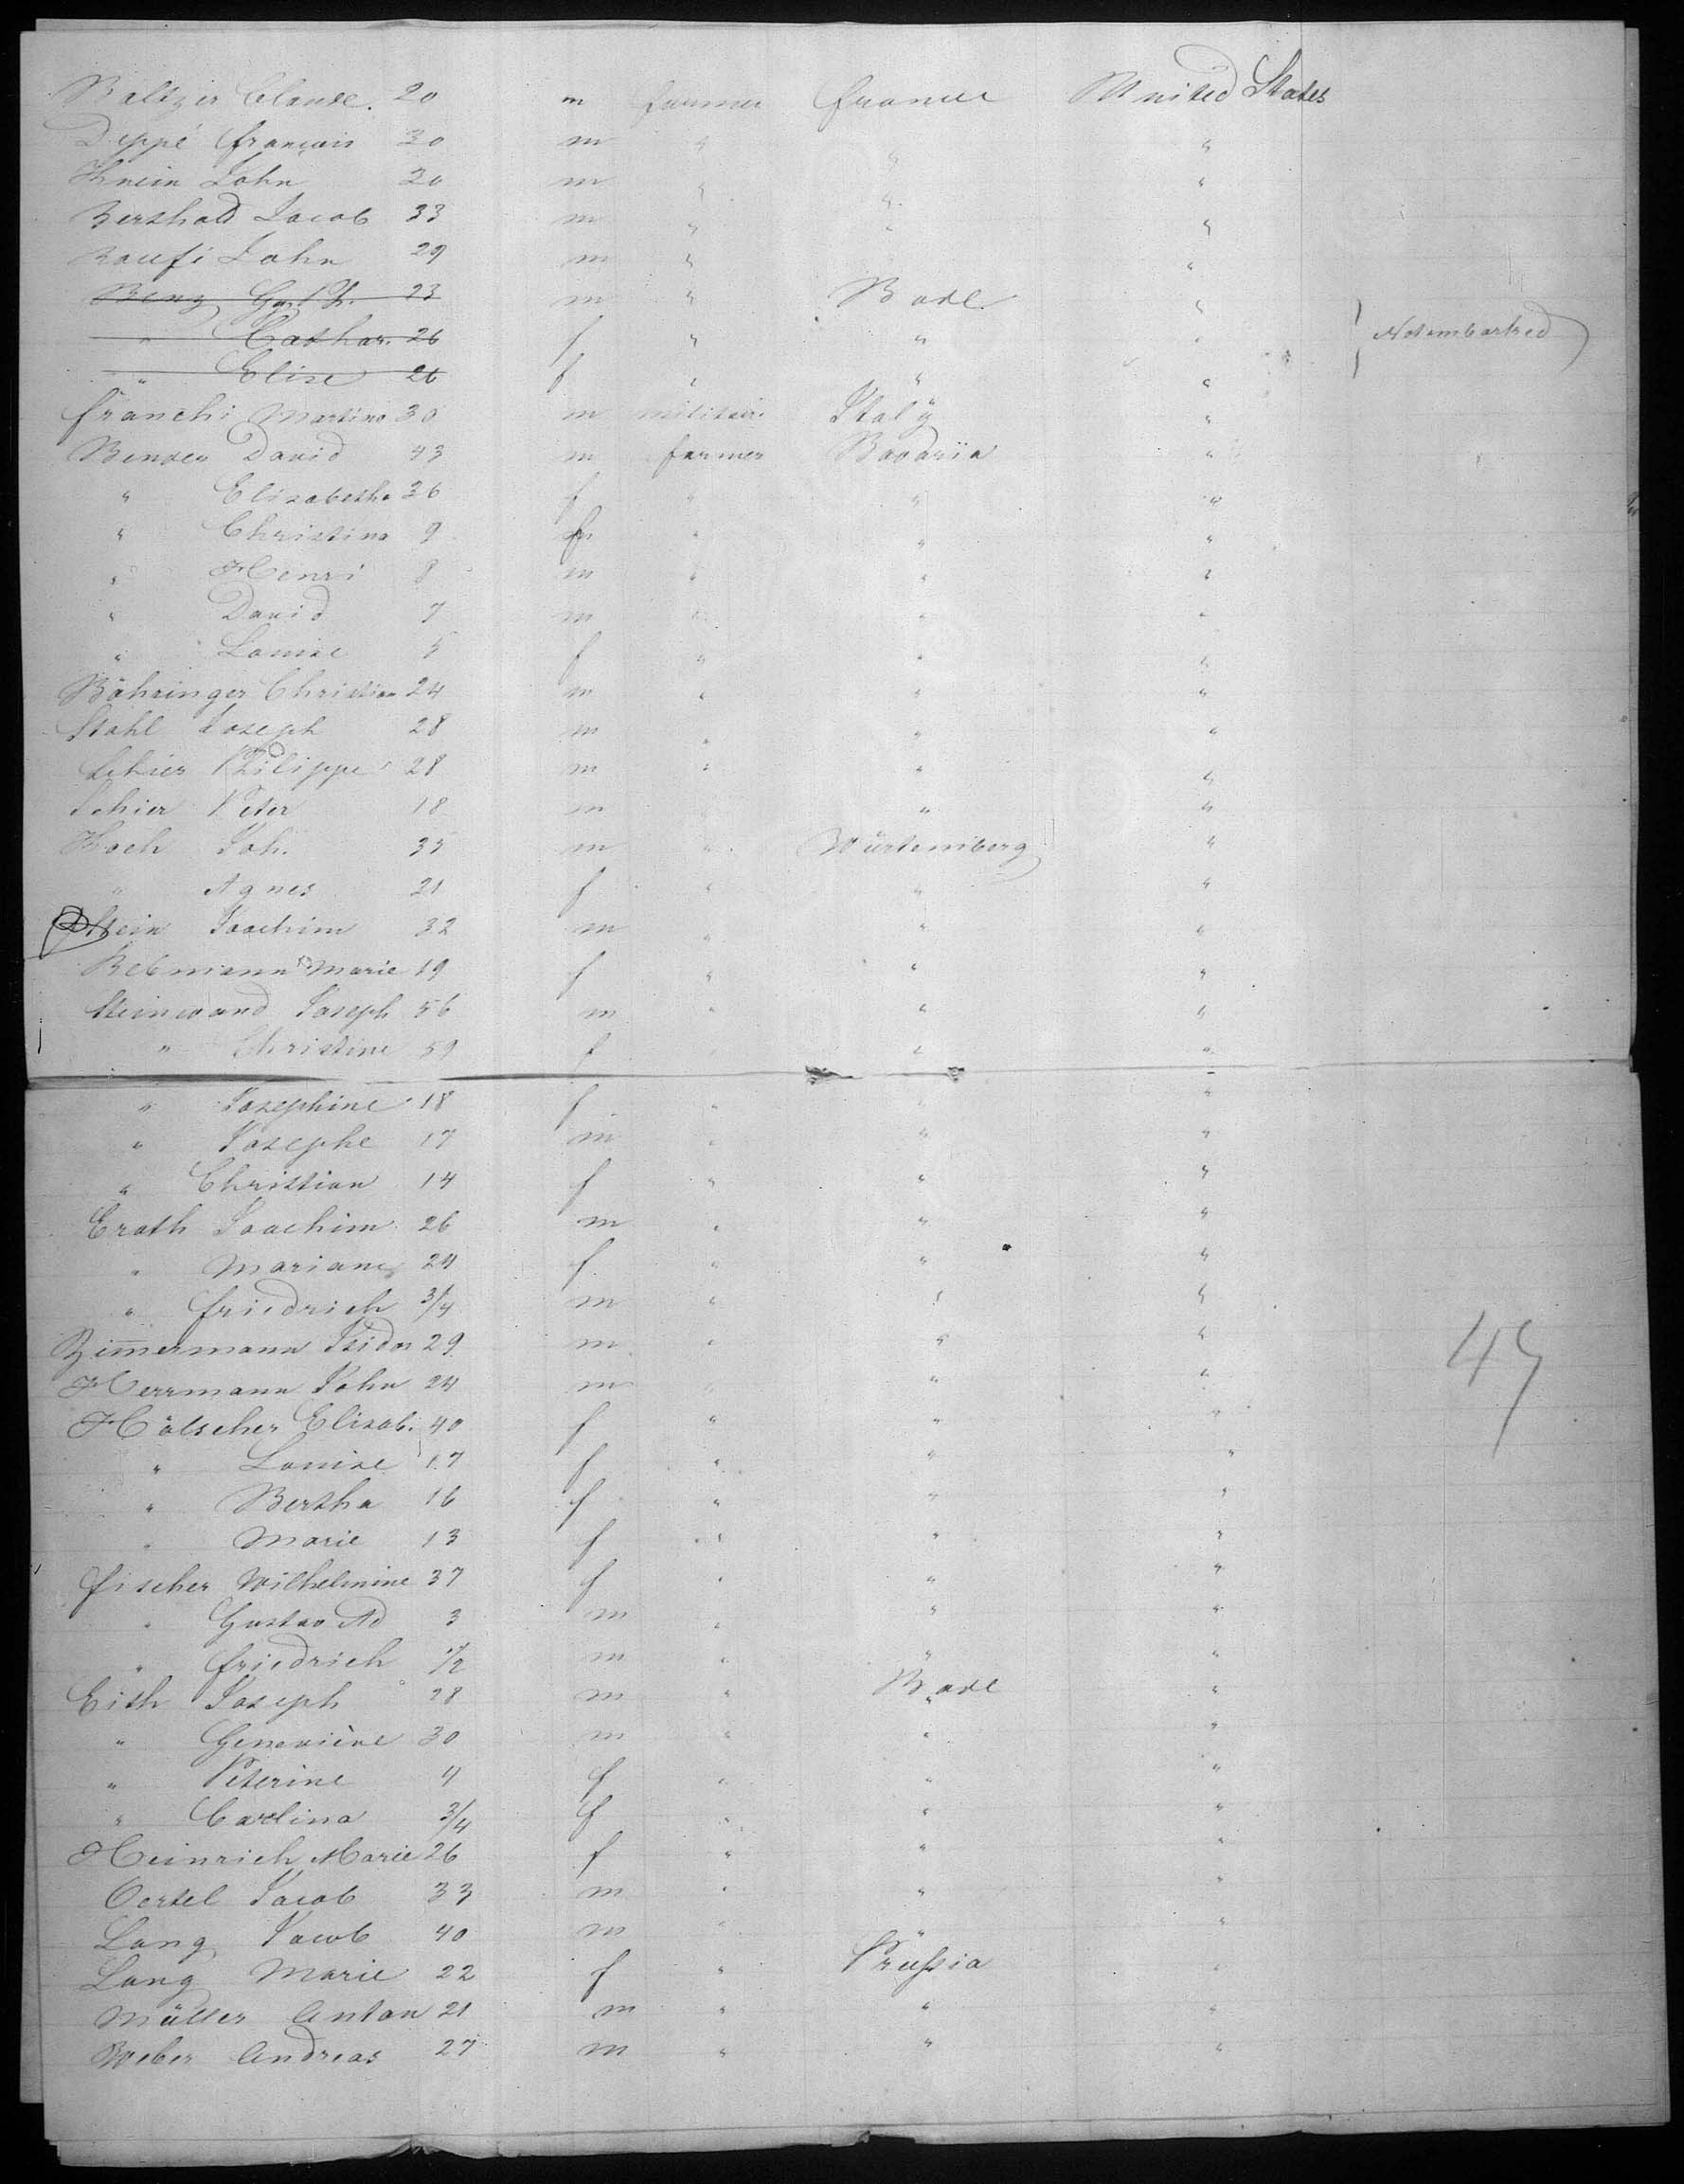 Baltzer Claude. 20 m farmer france United States
Deppé françois 30 m " " "
Knein John 20 m " " "
Berthold Jacob 33 m " " "
Raufi John 29 m " "
Benz 23 m " Bade "
" Cathar. 26 f " " " Not embarked
" Elise 26 f " " "
franchi Martino 30 m militair. Italy "
Bender David 43 m farmer Bavaria "
" Elisabetha 36 f " " "
" Christina 9 f " " "
" Henri 8 m " " "
" David 7 m " " "
" Louise 5 f " " "
Böhringer Christian 24 m " " "
Stahl Joseph 28 m " " "
Schier Philippe 28 m " " "
Schier Peter 18 m " "
Koch Joh. 35 m " Würtemberg "
" Agnes 21 f " " "
Stein Joachim 32 m " " "
Rebmann Marie 19 f " " "
Steinwand Joseph 56 m " " "
" Christine 59 f " " "
" Josephine 18 f " " "
" Josephe 17 m " " "
" Christian 14 f " " "
Erath Joachim 26 m " " "
" Mariane 24 f " " "
" friedrich 3/4 m " " "
Zim̄ermann Isidor 29 m " " "
Herrmann John 24 m " " "
Hölscher Elisab. 40 f " " "
" Louise 17 f " " "
" Bertha 16 f " " "
" Marie 13 f " " "
fischer Wilhelmine 37 f " " "
" Gustav Ad 3 m " " "
" friedrich 1/2 m " " "
Eith Joseph 28 m " Bade "
" Geneviève 30 m " " "
" Peterine 4 f " " "
" Carlina 3/4 f " " "
Heinrich Marie 26 f " " "
Oertel Jacob 33 m " " "
Lang Jacob 40 m " " "
Lang Marie 22 f " Prussia "
Müller Anton 21 m " " "
Weber Andreas 27 m " " "